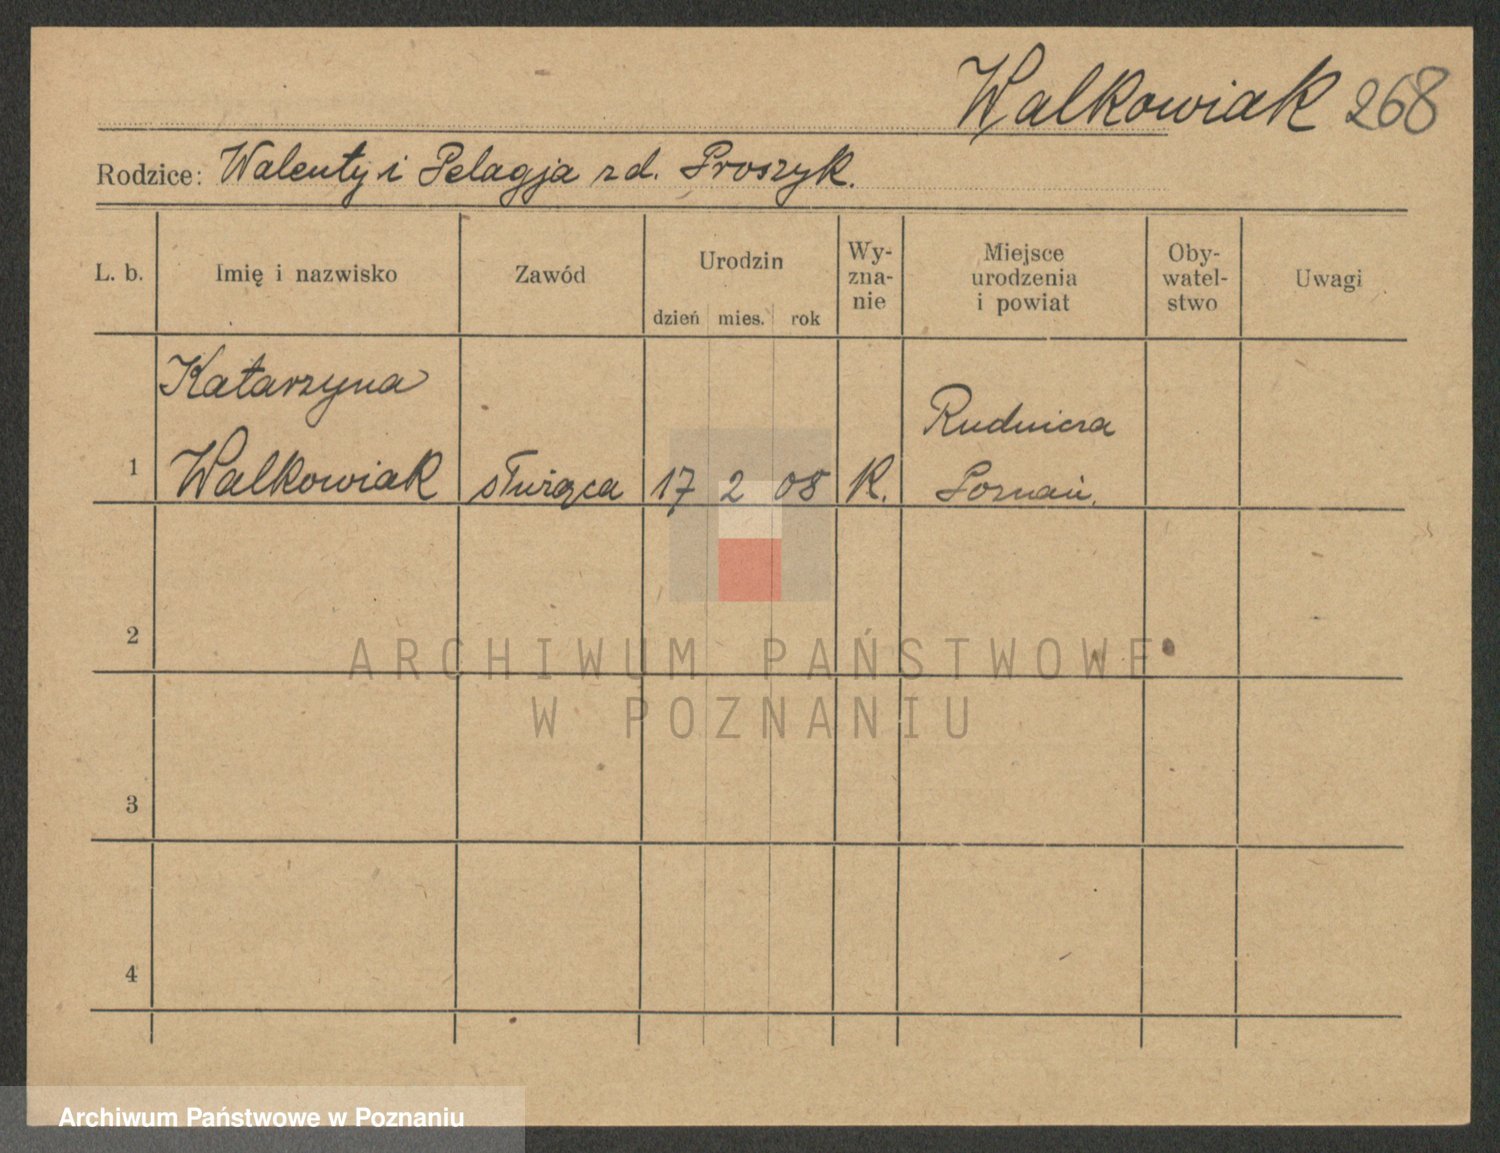 Walkowiak 268
Rodzice: Walenty i Pelagja zd. Proszyk.
L. b. Imię i nazwisko Zawód Urodzin dzień mies. rok Wy-zna-nie Miejsce urodzenia i powiat Oby-watel-stwo Uwagi
Katarzyna
Rudnicza
1 Walkowiak służąca 17 2 08 K. Poznań.
2
ARCHIWUM PAŃSTWOWE
W POZNANIU
3
4
Archiwum Państwowe w Poznaniu